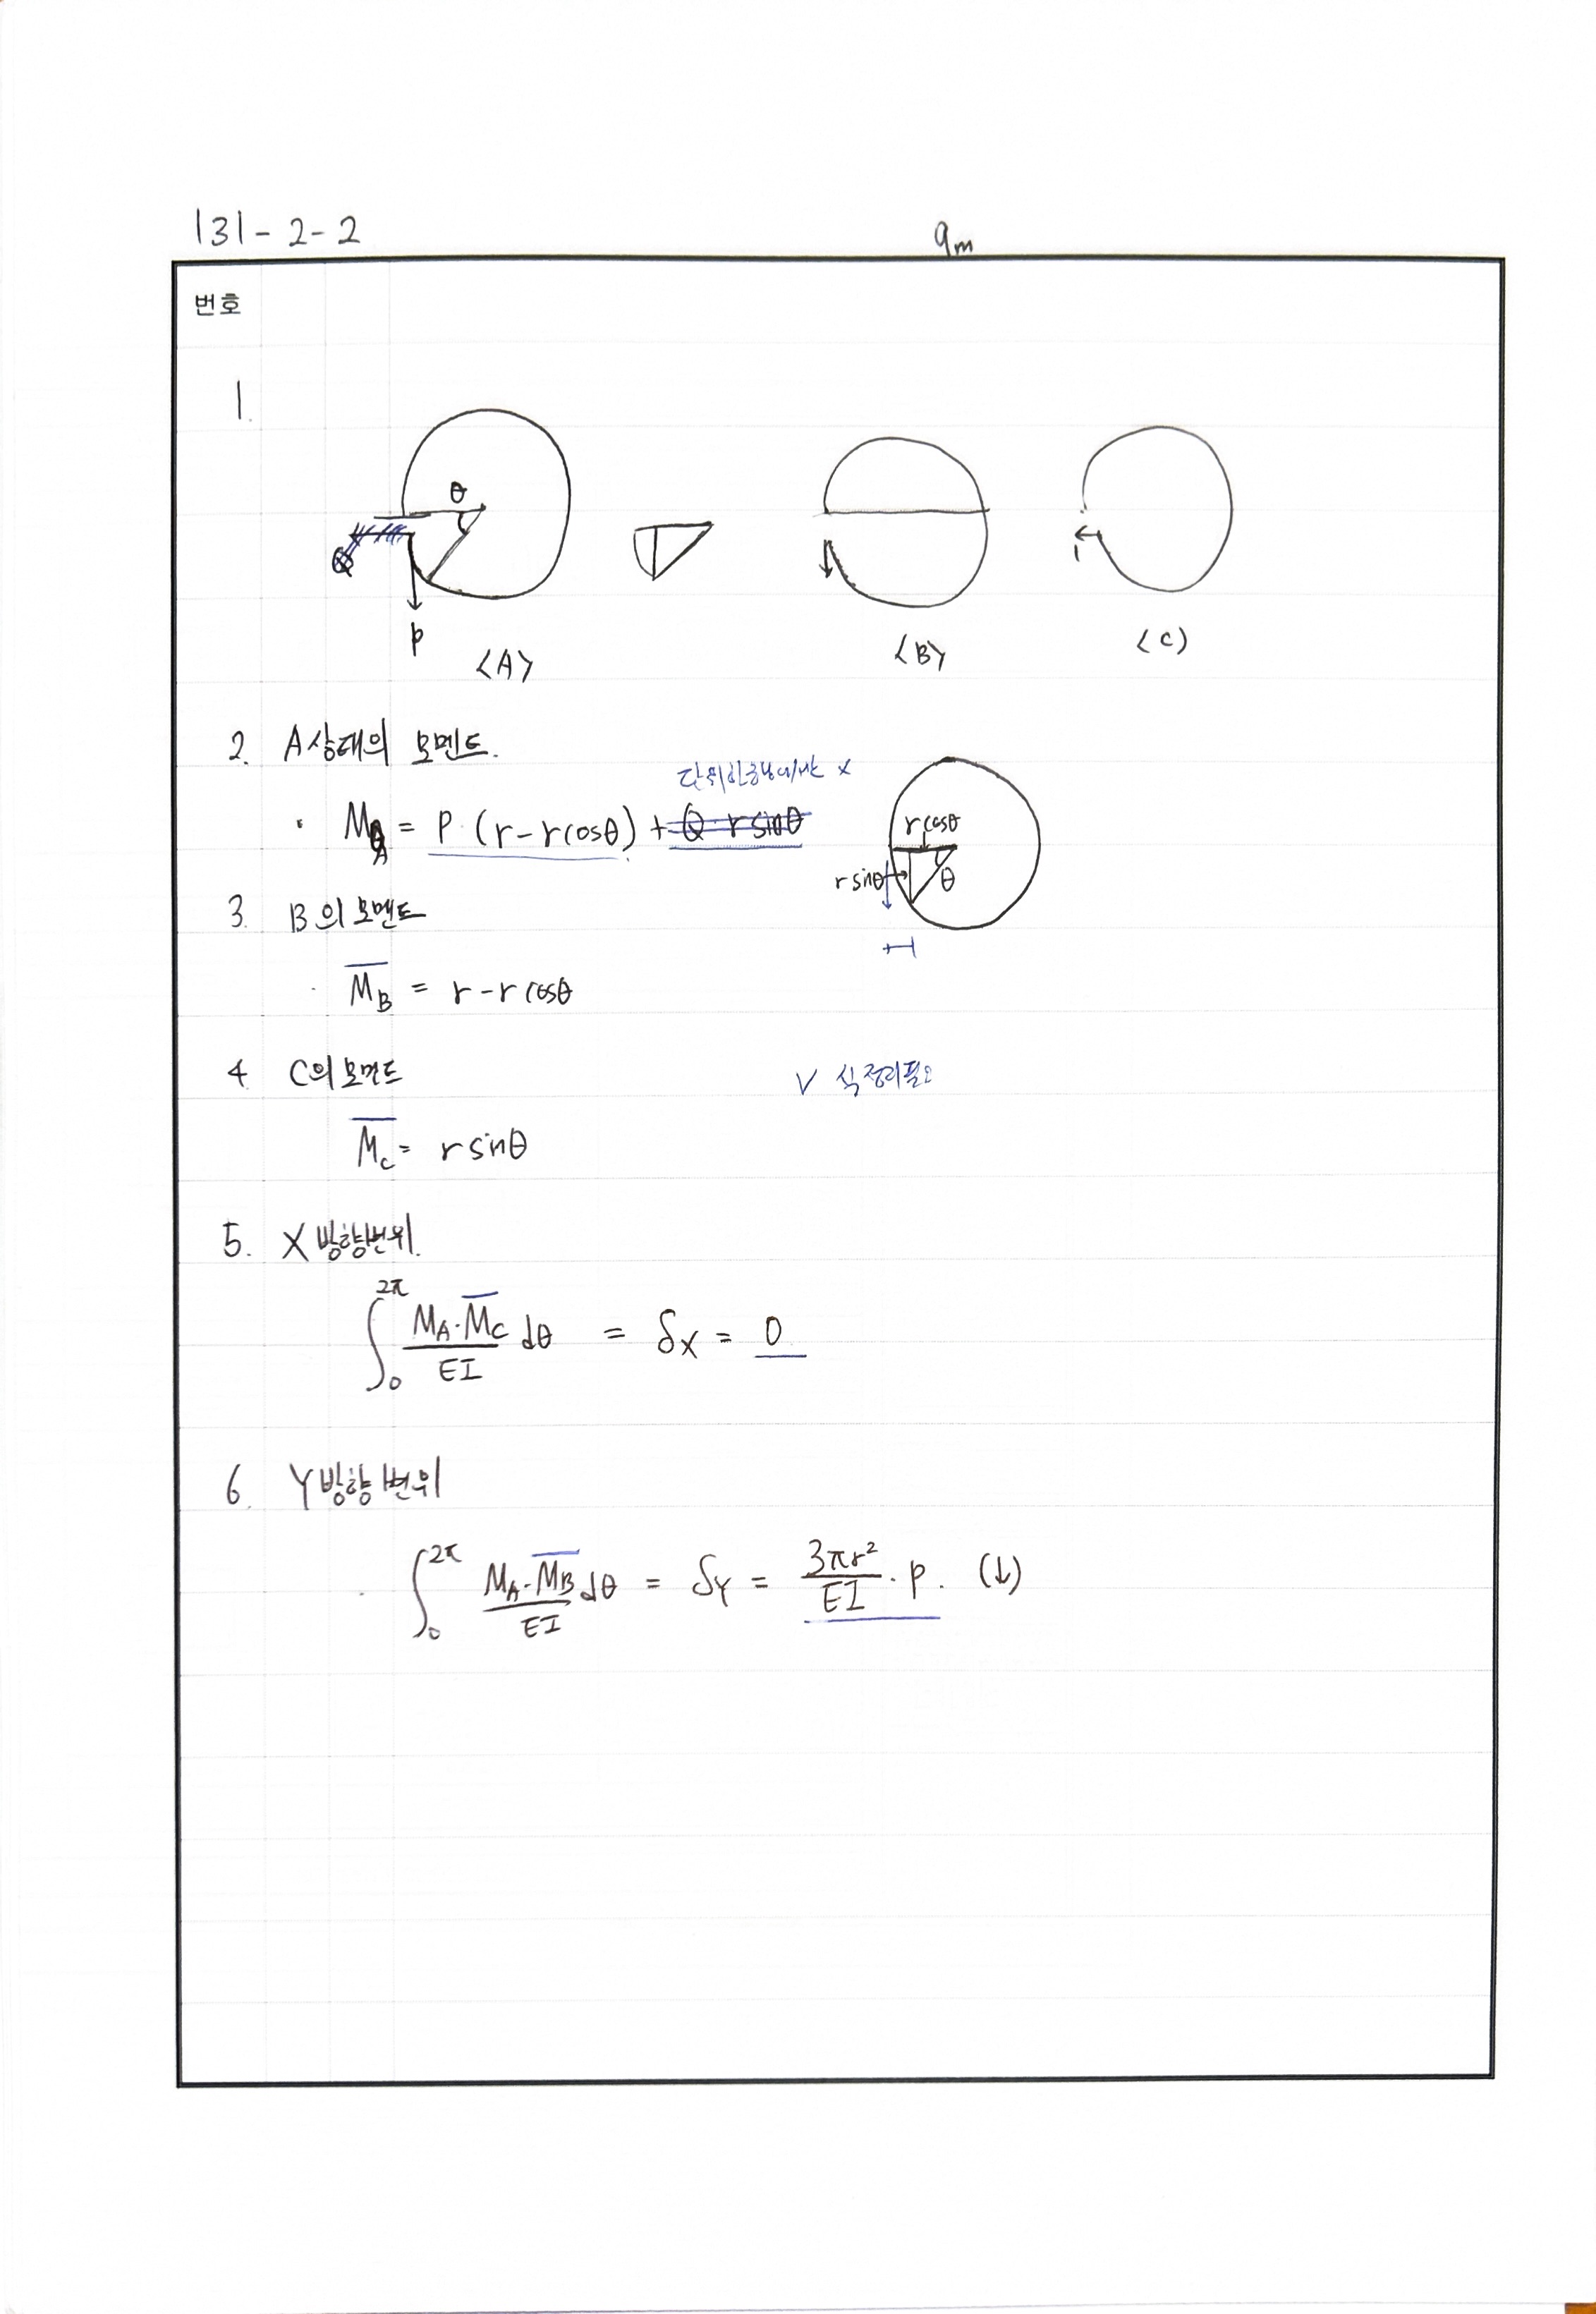 131-2-2
9m
번호
1.
θ
P
<A>
<B>
1
<C>
2. A상태의 모멘트.
단위하중법에서는 x
· M_A = P·(r-rcosθ) + Q·rsinθ
rcosθ
rsinθ
θ
3. B의 모멘트
· M̅_B = r-rcosθ
4. C의 모멘트
√ 식정리필요
M̅_C = rsinθ
5. X방향변위.
∫₀^2π M_A·M̅_C/EI dθ = δx = 0
6. Y방향변위
· ∫₀^2π M_A·M̅_B/EI dθ = δY = 3πr²/EI · P. (↓)